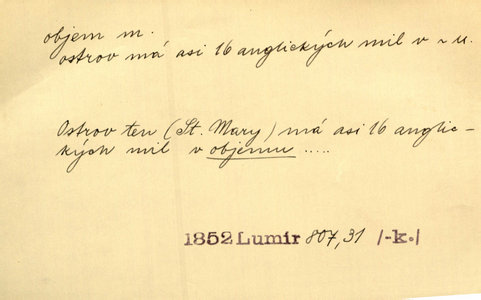 objem m.
ostrov má asi 16 anglických mil v ~u.
Ostrov ten (St. Mary) má asi 16 anglic-
kých mil v objemu .....
1852 Lumír 807,31 /-k./